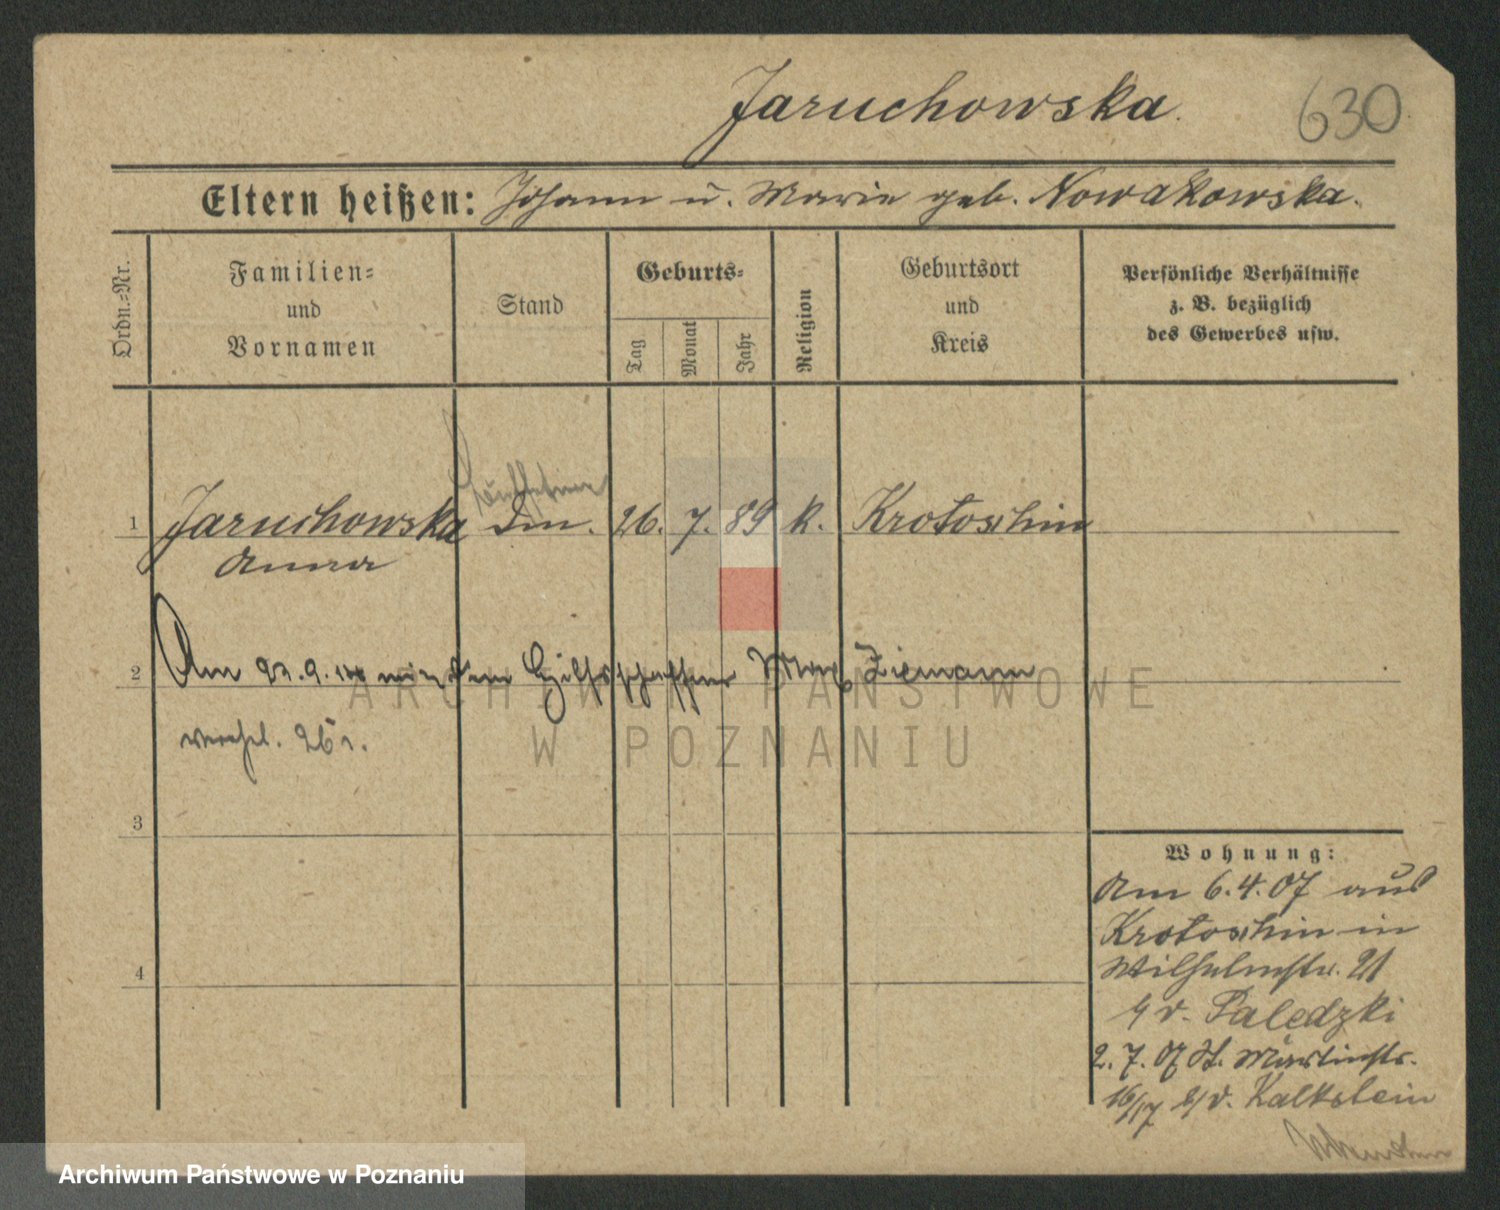 Jaruchowska.
630
Eltern heißen: Johann u. Marie geb. Nowakowska.
Ordn.=Nr.
Familien=
und
Vornamen
Stand
Geburts=
Tag
Monat
Jahr
Religion
Geburtsort
und
Kreis
Persönliche Verhältnisse
z. B. bezüglich
des Gewerbes usw.
1 Jaruchowska 26. 7. 89 k. Krotoschin
Anna
2 Am 9. mit dem Hilfsschaffner Max Ziemann
verehel.
3
4
Wohnung:
Am 6.4.07 aus
Krotoschin in
Wilhelmstr. 21
b/v. Paledzki
2. 7. 07 St. Martinstr.
16/17 b/v. Kalkstein
ARCHIWUM PAŃSTWOWE
W POZNANIU
Archiwum Państwowe w Poznaniu